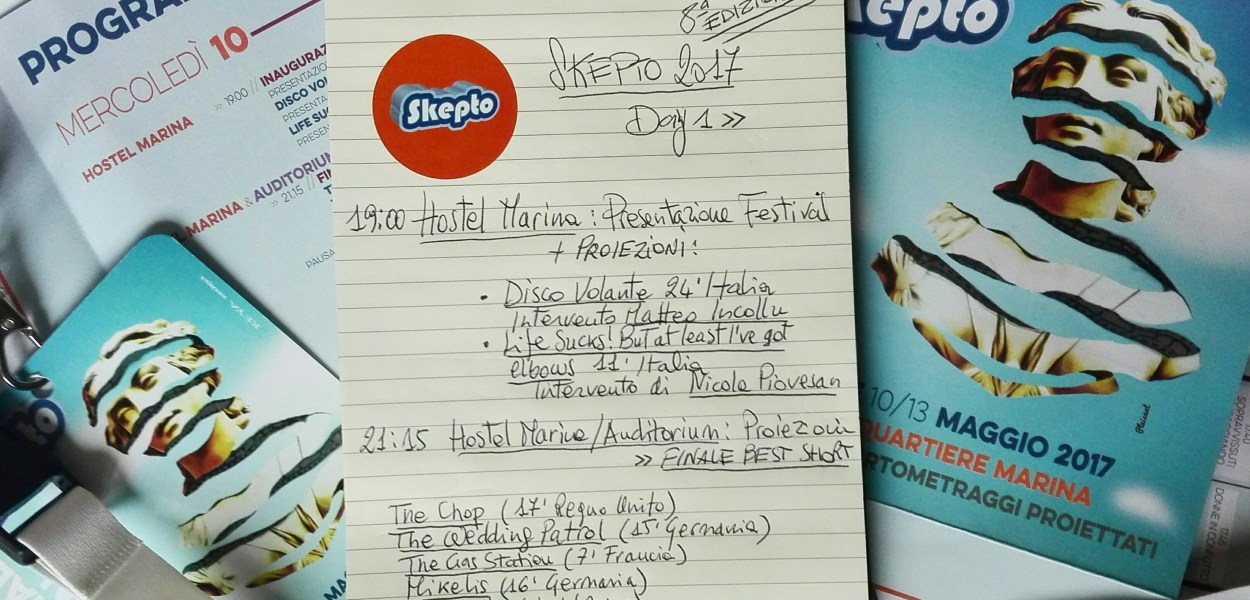 PROGRAM
MERCOLEDÌ 10
HOSTEL MARINA
» 19.00 // INAUGURAZ
PRESENTAZIO
DISCO VO
PRESENTA
LIFE SUC
PRESEN
MARINA & AUDITORIUM
» 21.15 // FI
PAUSA
8ª EDIZIO
Skepto
SKEPTO 2017
Day 1 >>
19:00 Hostel Marina: Presentazione Festival
+ PROIEZIONI:
• Disco Volante 24' Italia
Intervento Matteo Incollu
• Life Sucks! But at least I've got
elbows 11' Italia
Intervento di Nicola Piovesan
21:15 Hostel Marina/Auditorium: Proiezioni
>> FINALE BEST SHORT
The Chop (17' Regno Unito)
The Wedding Patrol (15' Germania)
The Gas Station (7' Francia)
Mikelis (16' Germania)
kepto
10/13 MAGGIO 2017
QUARTIERE MARINA
RTOMETRAGGI PROIETTATI
SOPRAVVISSUTI.
DONNE IN CONFLITTO
to
MA